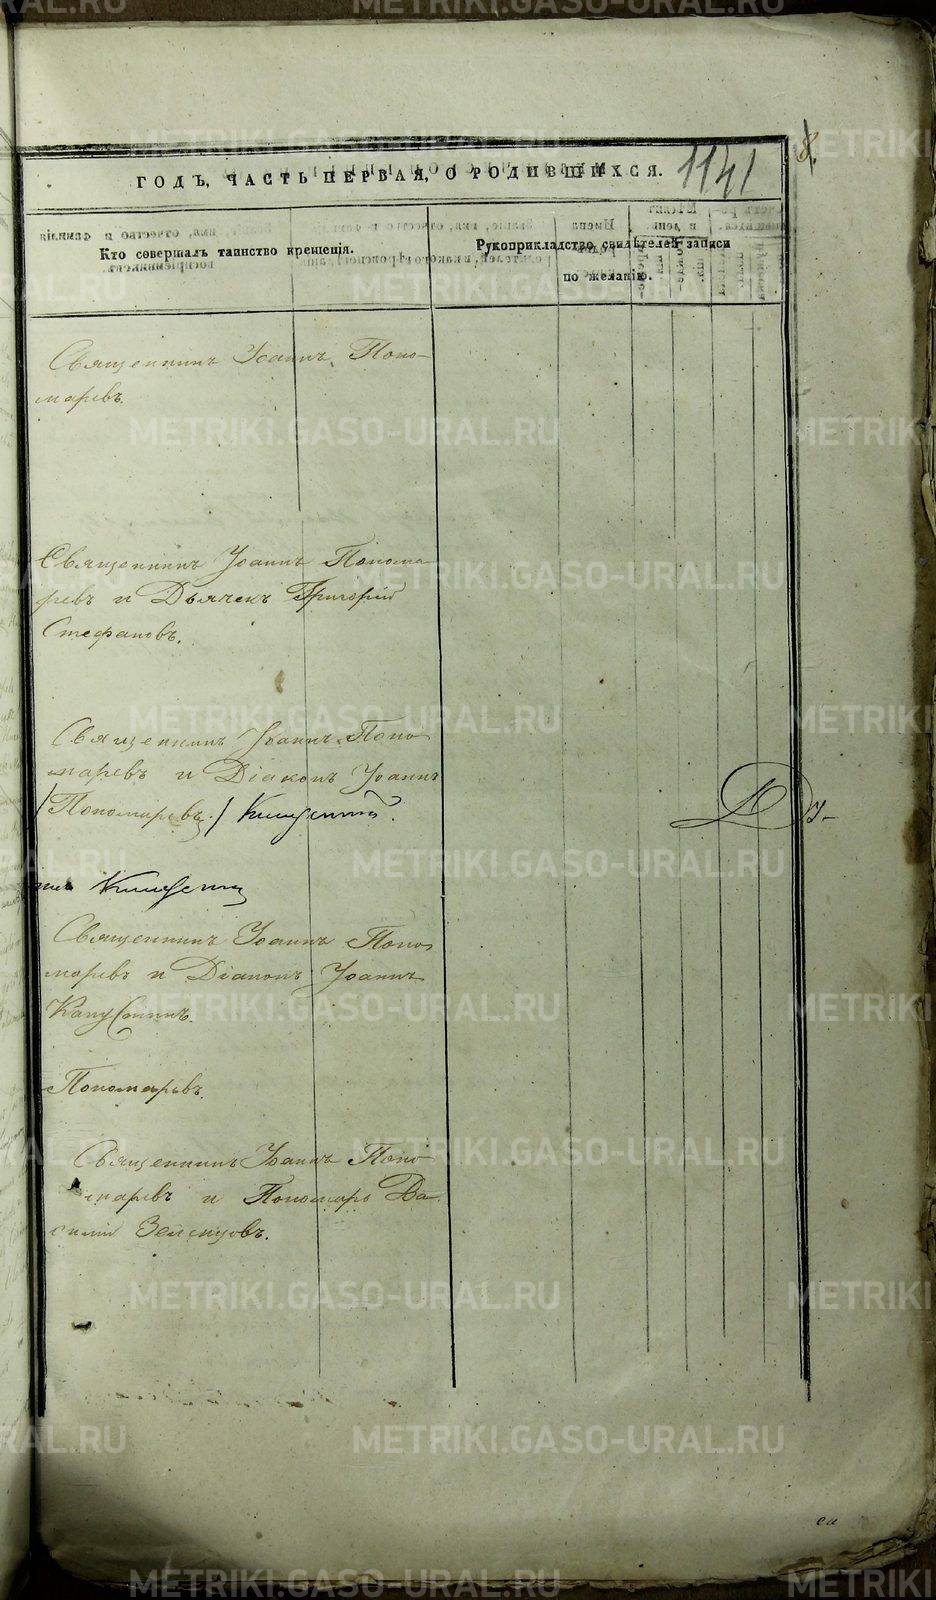 8.
ГОДЪ, ЧАСТЬ ПЕРВАЯ, О РОДИВШИХСЯ. 1141
Кто совершалъ таинство крещенія.
Рукоприкладство свидѣтелей записи
по желанію.
Священникъ Іоаннъ Поно-
маревъ.
Священникъ Іоаннъ Понома-
ревъ и Дьячекъ Григорій
Стефановъ.
Священникъ Іоаннъ Поно-
маревъ и Діаконъ Іоаннъ
/Пономаревъ./
Священникъ Іоаннъ Поно-
маревъ и Діаконъ Іоаннъ
Капустинъ.
Пономаревъ.
Священникъ Іоаннъ Поно-
маревъ и Пономарь Ва-
силій Зеленцовъ.
METRIKI.GASO-URAL.RU